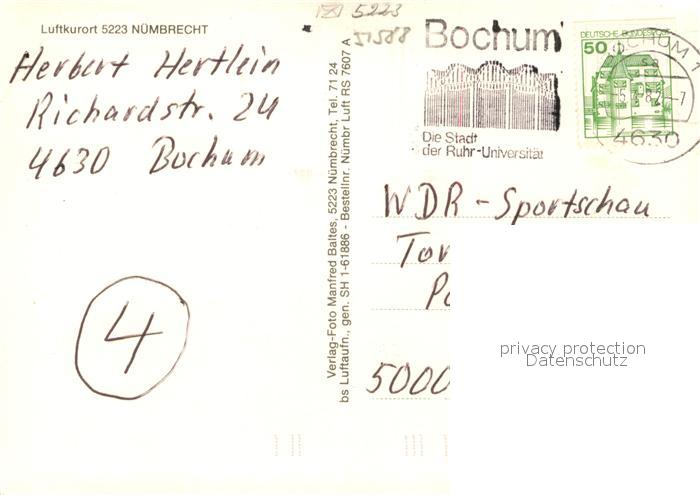 Luftkurort 5223 NÜMBRECHT
Herbert Hertlein
Richardstr. 24
4630 Bochum
4
Verlag-Foto Manfred Baltes, 5223 Nümbrecht, Tel. 71 24
bs Luftaufn., gen. SH 1-61886 - Bestellnr. Nümbr Luft RS 7607 A
5223
51588
Bochum
Die Stadt
der Ruhr-Universität
DEUTSCHE BUNDESPOST
50
BOCHUM 1
4630
WDR - Sportschau
Tor
5000
privacy protection
Datenschutz